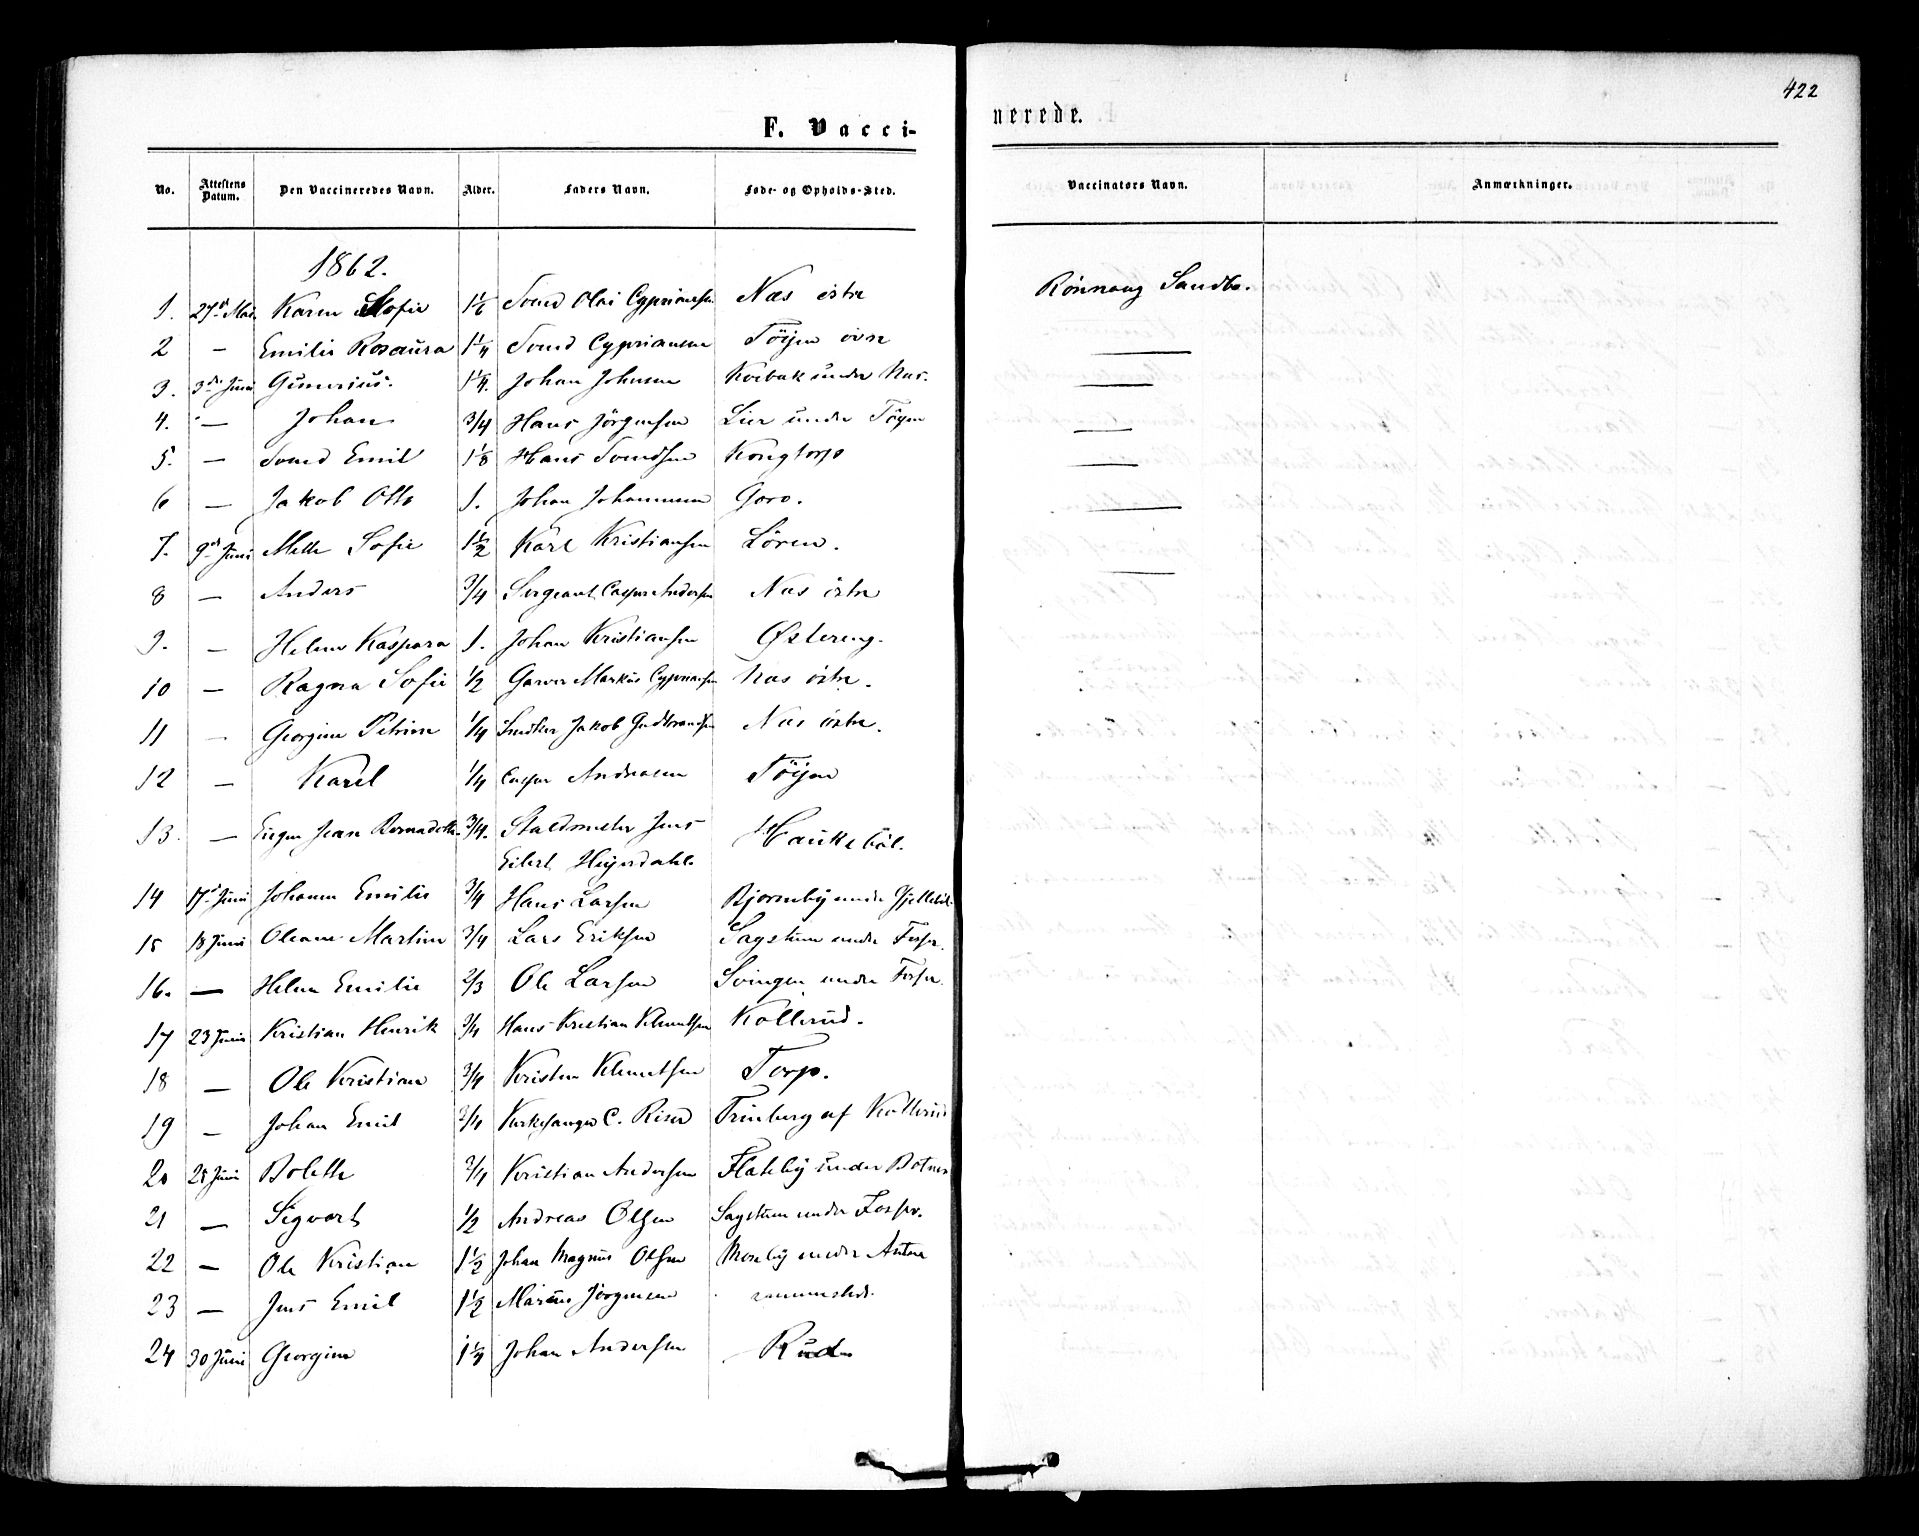 422
F. Vacci-
nerede.
No. Attestens Datum. Den Vaccineredes Navn. Alder. Faders Navn. Føde- og Opholds-Sted. Vaccinators Navn. Anmærkninger.
1862.
1. 27de Mai. Karen Sofie 1 1/6 Svend Olai Cypriansen Næs østre Rönnaug Sandbo.
2 — Emilie Rosaura 1 1/4 Svend Cypriansen Töijen övre —
3. 3die Juni Gunerius. 1 1/4. Johan Johnsen under Næs. —
4. — Johan 3/4 Hans Jörgensen Lier under Töyen —
5. — Svend Emil 1 1/8 Hans Svendsen Kongtorp —
6 — Jakob Otto 1. Johan Johannesen Garo. —
7. 9de Juni Mette Sofie 1 1/2 Karl Kristiansen Lören. —
8 — Anders 3/4 Sergeant Casper Andersen Næs östre
9. — Helene Kaspara 1. Johan Kristiansen Østereng.
10 — Ragna Sofie 1/2 Garver Markus Cypriansen Næs östre.
11 — Georgine Petrine 1/4 Snedker Jakob Gudbrandsen Næs östre.
12 — Karel 1/4 Casper Andreasen Töijen
13. — Eugen Jean Bernadotte 3/4. Staldmester Jens
Eilert Heyerdahl. Haukeböl.
14 17de Juni Johanne Emilie 3/4 Hans Larsen Bjorneby under Gjellebøl.
15 18 Juni Oleane Martine 3/4 Lars Eriksen Sagstuen under Fosser.
16. — Helene Emilie 2/3 Ole Larsen Svingen under Fosser.
17 23 Juni Kristian Henrik 3/4 Hans Kristian Klemetsen Kollerud.
18 — Ole Kristian 3/4 Kristen Klemetsen Torp.
19 — Johan Emil 3/4 Kirkesanger C. Riser af Kollerud
20 25 Juni Bolette 3/4 Kristian Andersen Flateby under Botner
21 — Sigvart 1/2 Andreas Olsen Sagstuen under Fosser.
22 — Ole Kristian 1 1/2 Johan Magnus Olsen Moseby under
23 — Jens Emil 1 1/2 Marius Jörgensen sammesteds.
24 30 Juni Georgine 1 1/4 Johan Andersen Rud